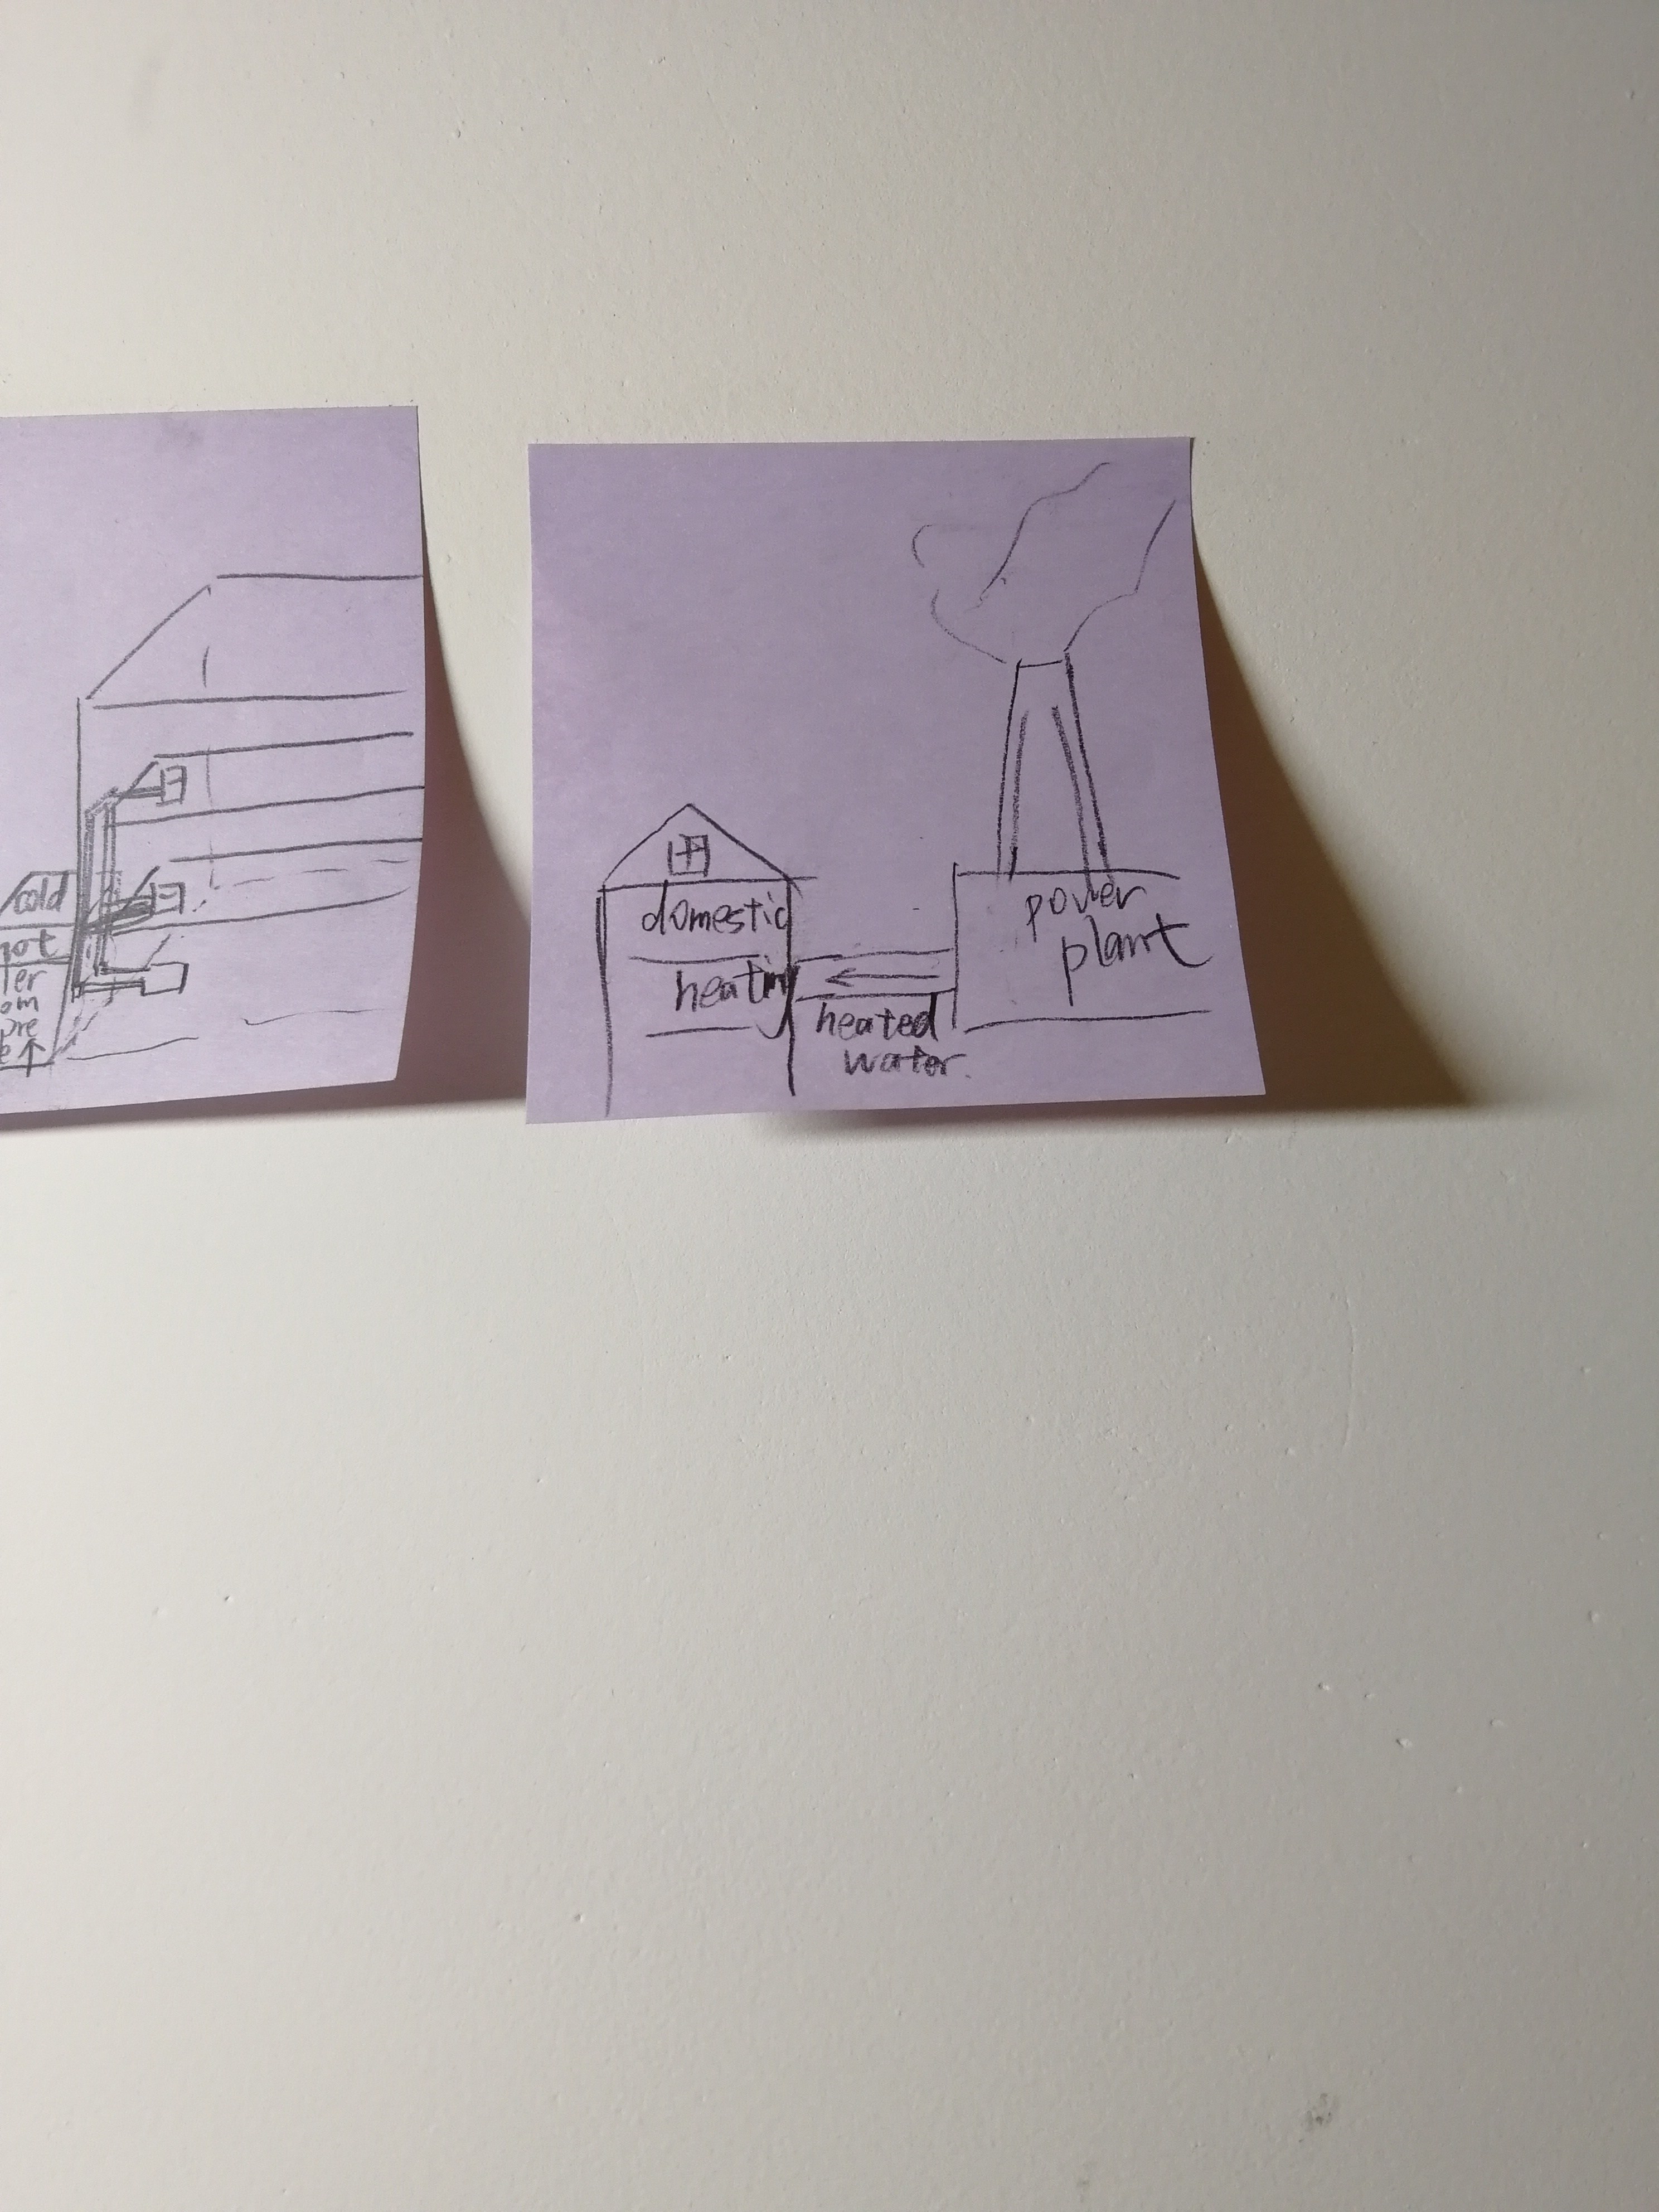 cold
hot
domestic
heating
heated
water.
power
plant